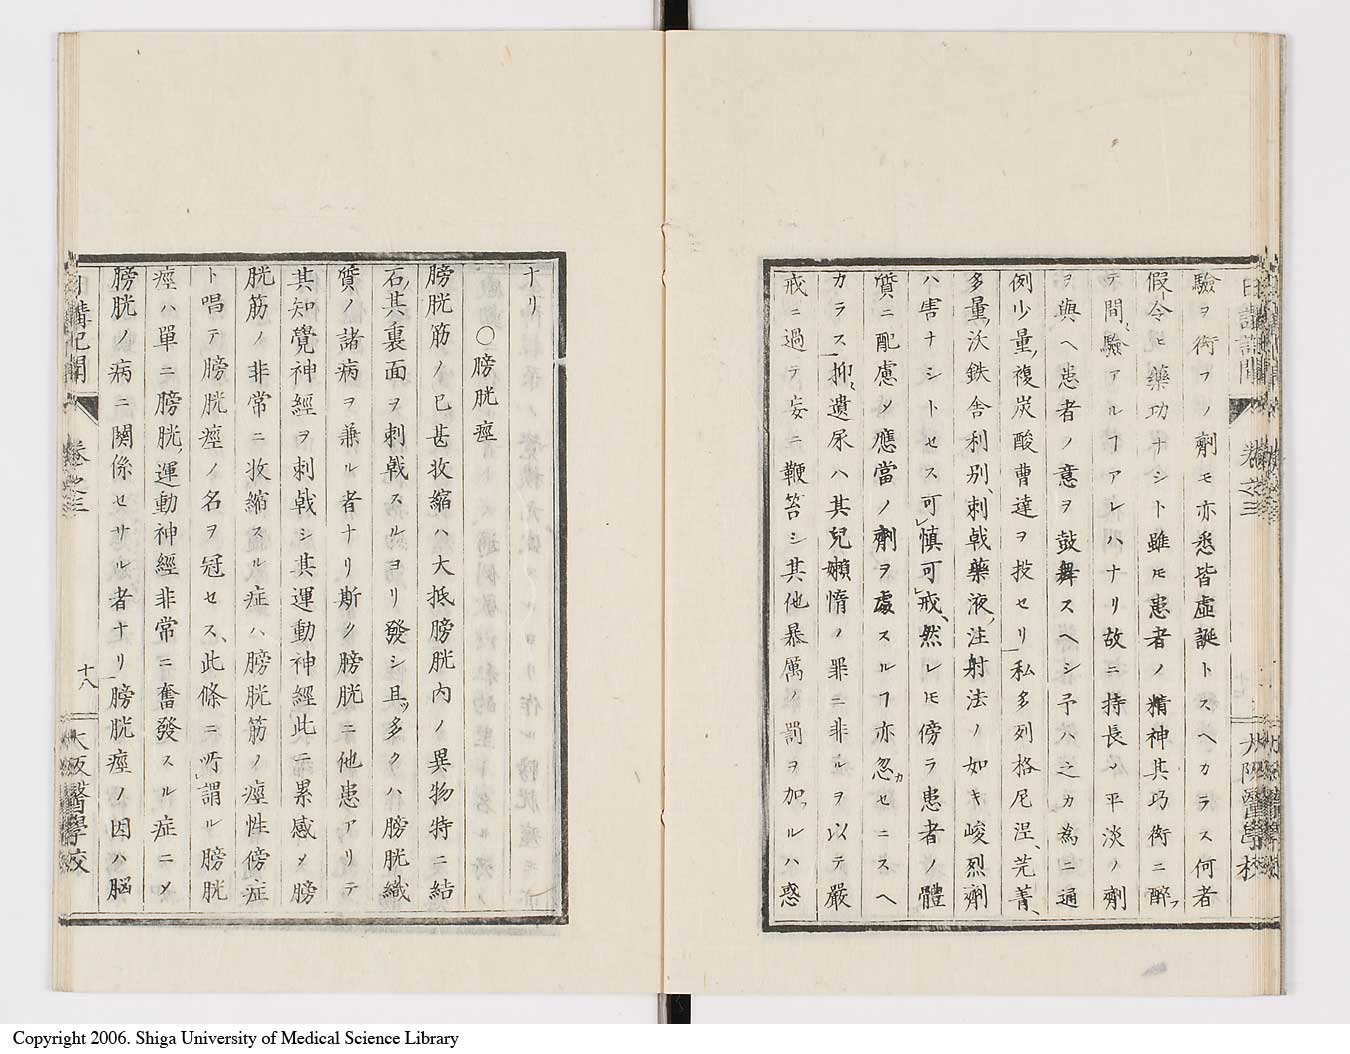 驗ヲ衒フノ劑モ亦悉皆虛誕トスヘカラス何者
假令ヒ藥功ナシト雖モ患者ノ精神其巧衒ニ醉フ
テ間〻驗アルヿアレハナリ故ニ持長シ平淡ノ劑
ヲ與ヘ患者ノ意ヲ鼓舞スヘシ予ハ之カ為ニ通
例少量ノ複炭酸曹達ヲ投セリ私多列格尼涅、芫菁、
多量ノ沃鉄舎利別、刺戟藥液ノ注射法ノ如キ峻烈劑
ハ害ナシトセス可慎可戒、然レモ傍ラ患者ノ體
質ニ配慮シテ應當ノ劑ヲ處スルヿ亦忽カセニスヘ
カラス抑〻遺尿ハ其兒嬾惰ノ罪ニ非ルヲ以テ嚴
戒ニ過テ妄ニ鞭笞シ其他暴厲ノ罰ヲ加フルハ惑
日講記聞 卷之三 大阪醫學校
ナリ
〇膀胱痙
膀胱筋ノ已甚收縮ハ大抵膀胱内ノ異物特ニ結
石、其裏面ヲ刺戟スルヨリ發シ且ツ多クハ膀胱織
質ノ諸病ヲ兼ル者ナリ斯ク膀胱ニ他患アリテ
其知覺神經ヲ刺戟シ其運動神經此ニ累感メ膀
胱筋ノ非常ニ收縮スル症ハ膀胱筋ノ痙性傍症
ト唱テ膀胱痙ノ名ヲ冠セス、此條ニ所謂ル膀胱
痙ハ單ニ膀胱ノ運動神經非常ニ奮發スル症ニメ
膀胱ノ病ニ関係セサル者ナリ膀胱痙ノ因ハ脳
日講記聞 卷之三 十八 大阪醫學校
Copyright 2006. Shiga University of Medical Science Library